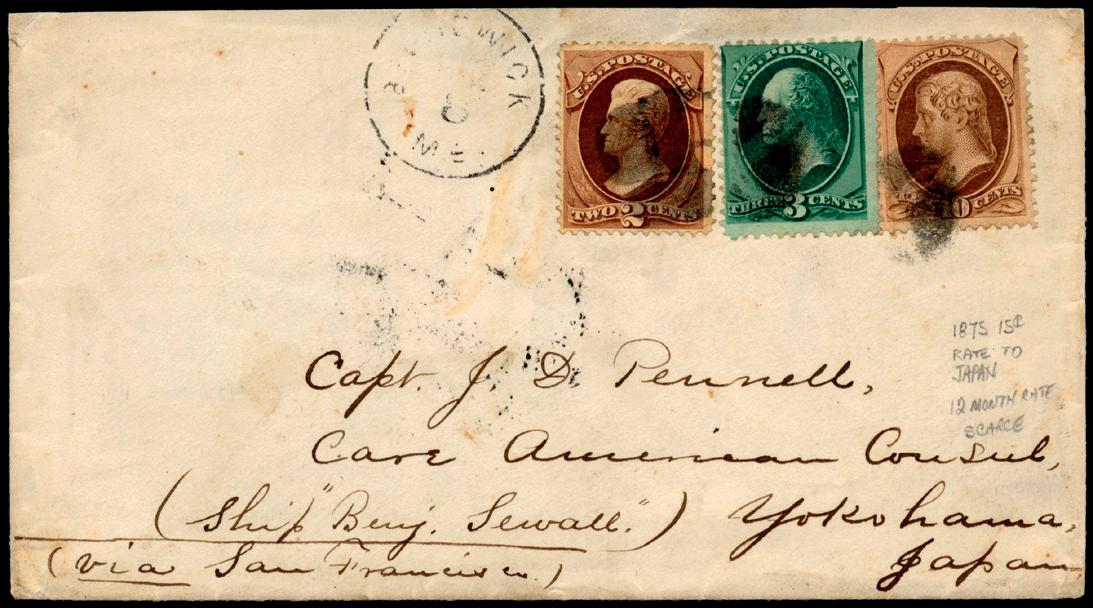 ME.
U.S. POSTAGE
TWO 2 CENTS
U.S. POSTAGE
THREE 3 CENTS
U.S. POSTAGE
10 CENTS
1875 15¢
RATE TO
JAPAN
12 MONTH RATE
SCARCE
Capt. J. D. Pennell,
Care American Consul,
(Ship "Benj. Sewall.") Yokohama,
(via San Francisco.) Japan